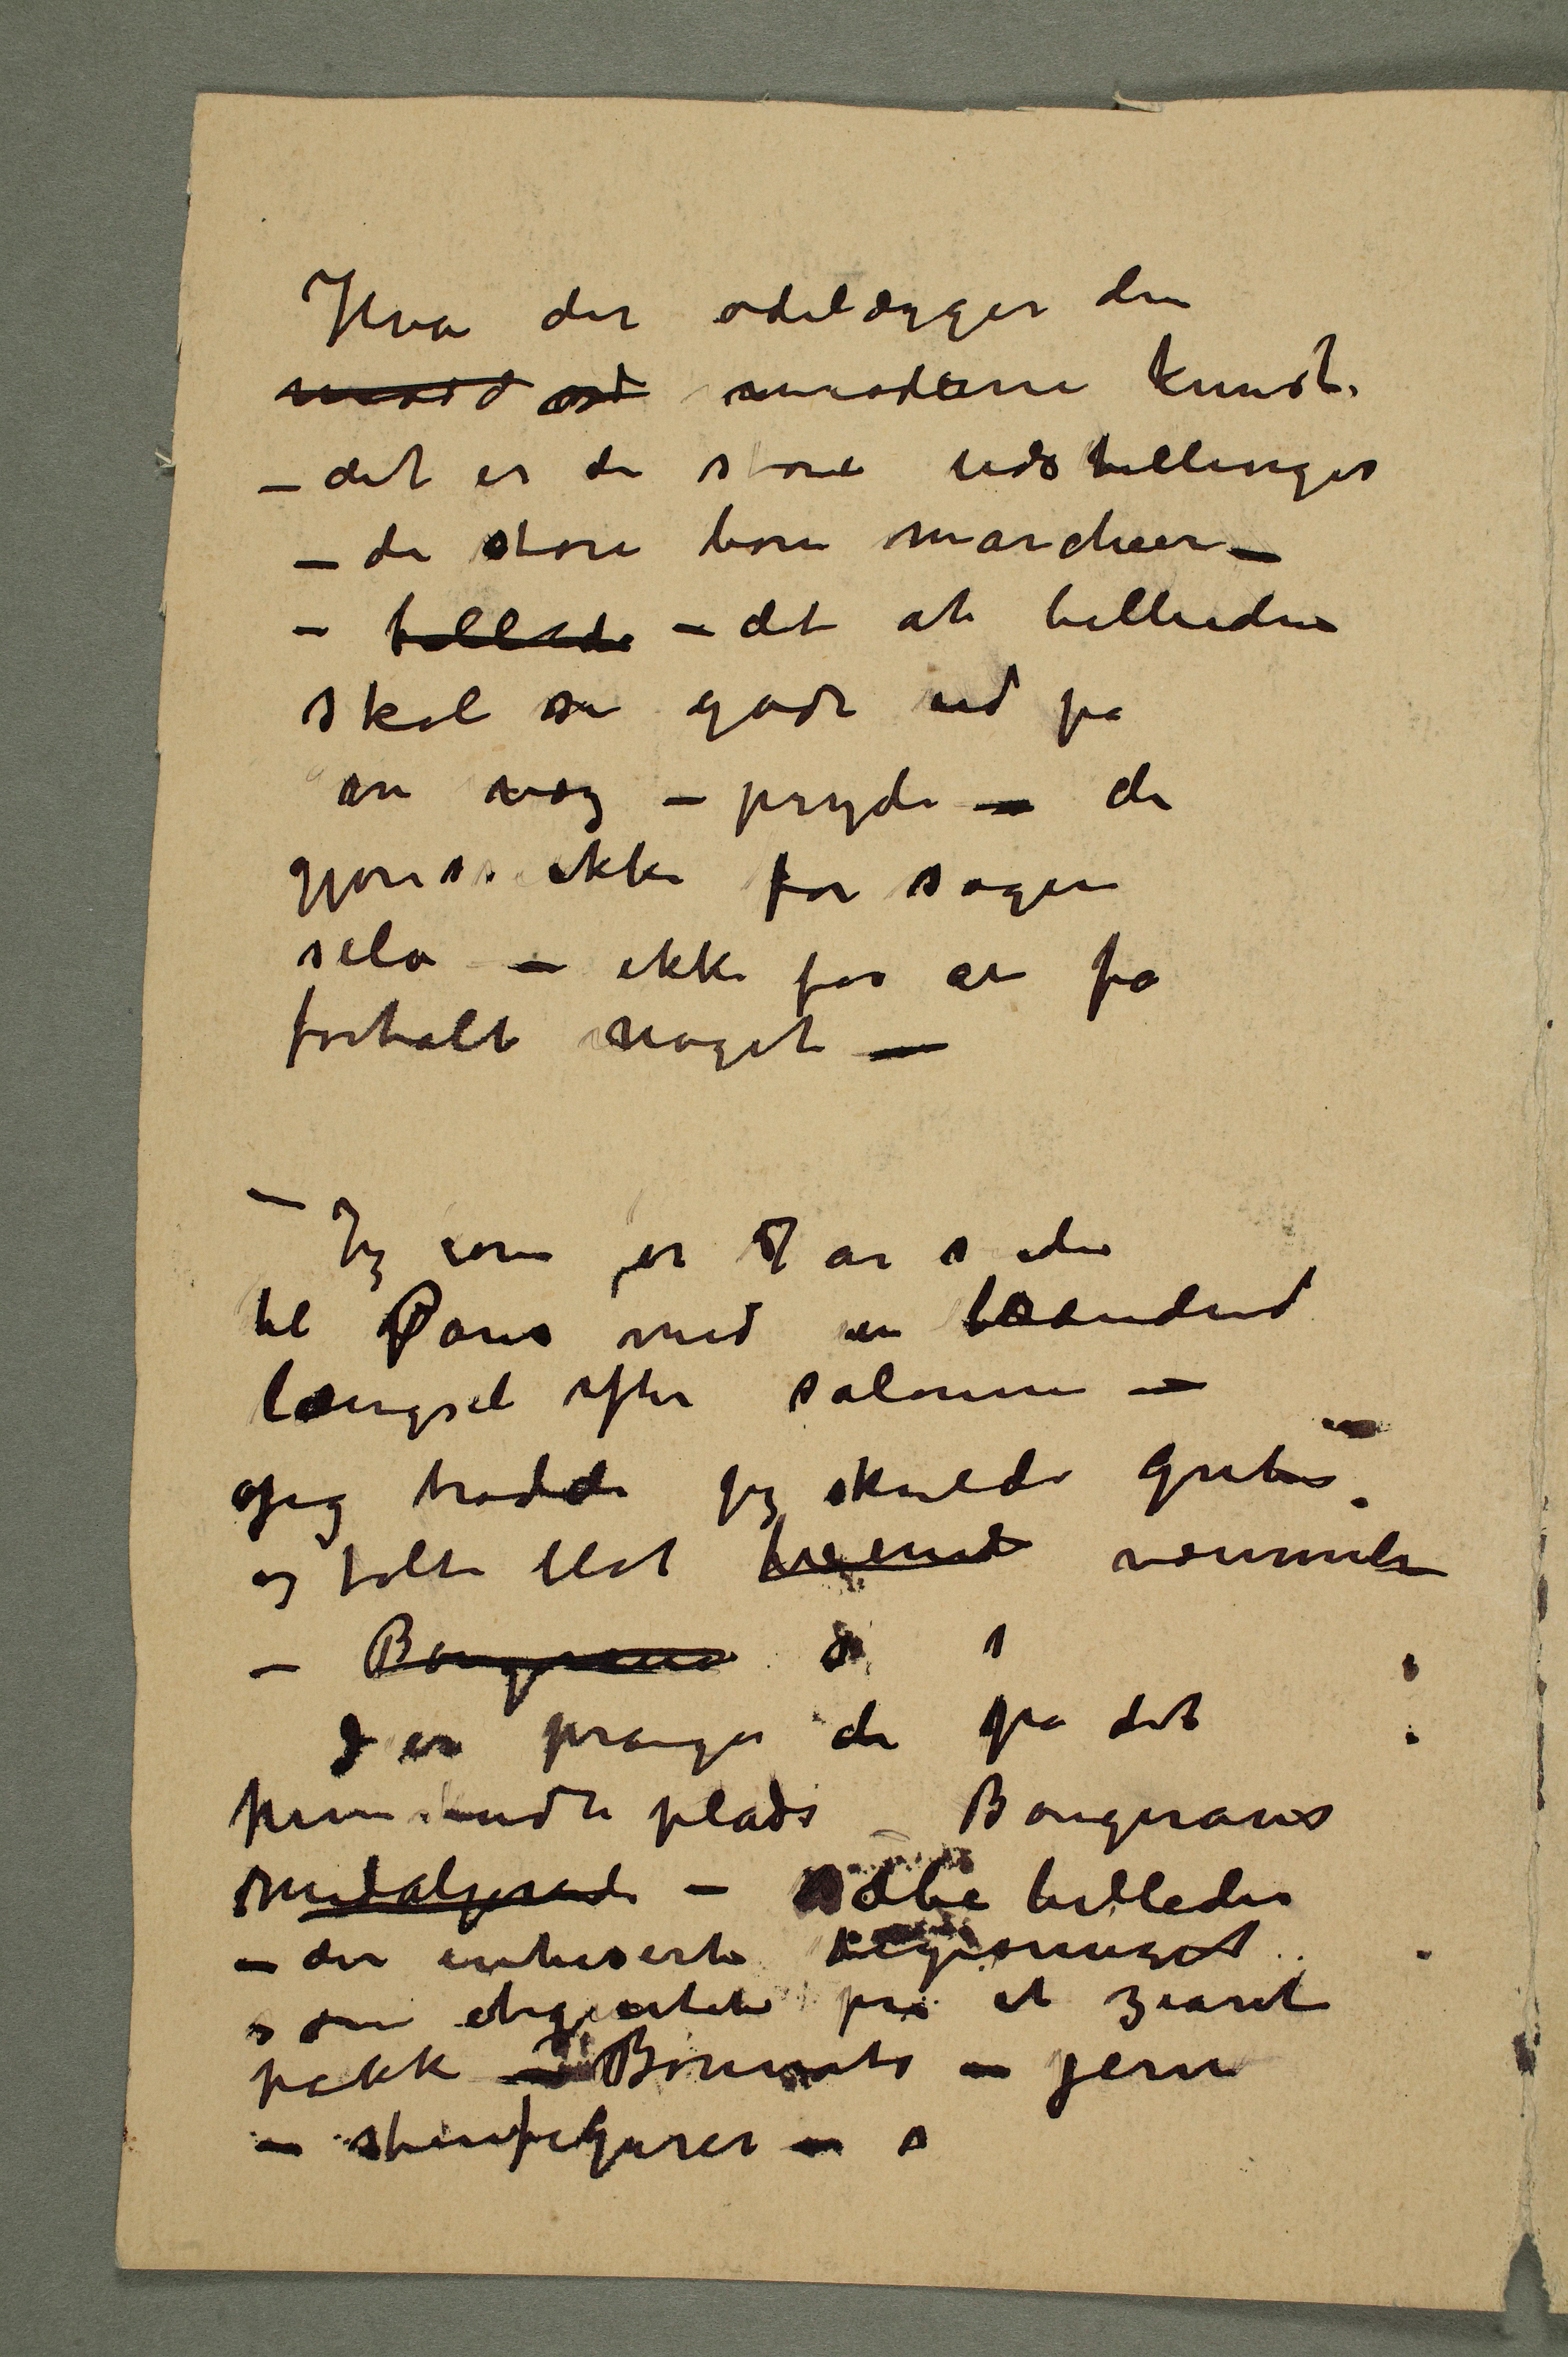 Hva der ødelægger den
moderne kunst.
– det er de store udstillinger
– de store bon marcheer –
– – det at billeder
skal se godt ud på
en væg – pryde – de
gjøres ikke for sagen
selv – ikke for at få
fortalt noget –
– Jeg som for 7 år siden
til Paris med en brændend
længsel efter salonen –
og jeg trodde jeg skulde gribes
og følte blot væmmelse
–
Der pranger de på det
plads – Bougeraus
– sæbe billeder
– der
som etiquetter på et
pakk – Bonnats – jern
– stenfigurer – s